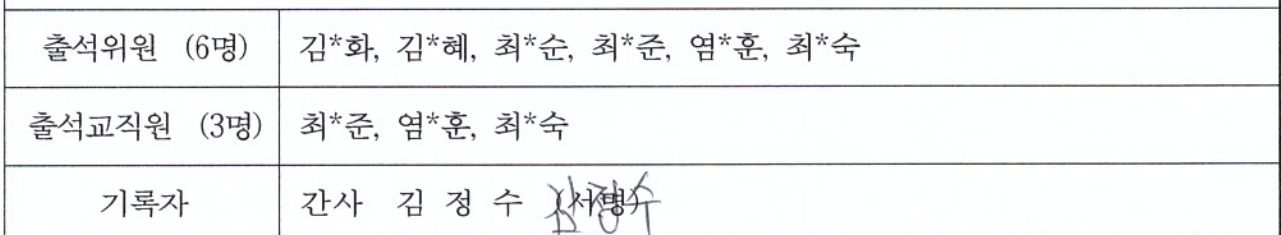 출석위원 (6명) 김*화, 김*혜, 최*순, 최*준, 염*훈, 최*숙
출석교직원 (3명) 최*준, 염*훈, 최*숙
기록자 간사 김 정 수 (서명) 김정수